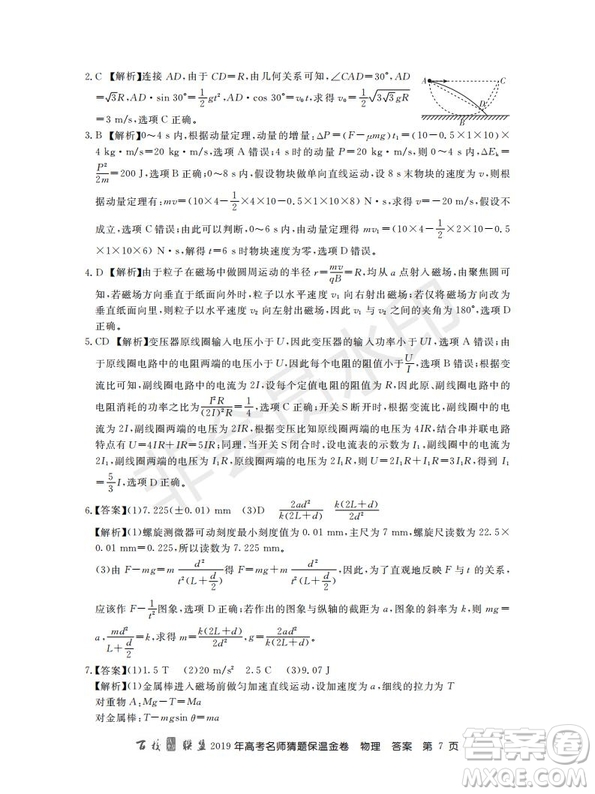 2. C 【解析】连接 AD,由于 CD=R,由几何关系可知,∠CAD=30°,AD
=√3R,AD·sin 30°=1/2gt²,AD·cos 30°=v₀t,求得 v₀=1/2√(3√3gR)
=3 m/s,选项 C 正确。
A C D B
3. B 【解析】0~4 s 内,根据动量定理,动量的增量:ΔP=(F-μmg)t₁=(10-0.5×1×10)×
4 kg·m/s=20 kg·m/s,选项 A 错误;4 s 时的动量 P=20 kg·m/s,则 0~4 s 内,ΔEₖ=
P²/2m=200 J,选项 B 正确;0~8 s 内,假设物块做单向直线运动,设 8 s 末物块的速度为 v,则
根据动量定理有:mv=(10×4-1/2×4×10-0.5×1×10×8) N·s,求得 v=-20 m/s,假设不
成立,选项 C 错误;由此可以判断,0~6 s 内,根据动量定理 mv₁=(10×4-1/2×2×10-0.5
×1×10×6) N·s,解得 t=6 s 时物块速度为零,选项 D 错误。
4. D 【解析】由于粒子在磁场中做圆周运动的半径 r=mv/qB=R,均从 a 点射入磁场,由聚焦圆可
知,若磁场方向垂直于纸面向外时,粒子以水平速度 v₁ 向右射出磁场;若仅将磁场方向改为
垂直纸面向里时,粒子以水平速度 v₂ 向左射出磁场,因此 v₁ 与 v₂ 之间的夹角为 180°。
5. CD 【解析】变压器原线圈输入电压小于 U,因此变压器的输入功率小于 UI,选项 A 错误;由
于原线圈电路中的电阻两端的电压小于 U,电流为 I,因此每个电阻的阻值小于 U/I,选项 B 错
误;根据变流比可知,副线圈电路中的电流为 2I,设每个定值电阻的阻值为 R,则原、副线圈中的
电阻消耗的功率之比为 I²R/(2I)²R=1/4,选项 C 正确;开关 S 断开时,原线圈电路中的电流为 I,则
副线圈中的电流为 2I,副线圈两端的电压为 2IR,根据变压比知原线圈两端的电压为 4IR,结合串并联电路
特点有 U=4IR+IR=5IR;同理,当开关 S 闭合时,设电流表示数为 I₁,则副线圈中的电流为
2I₁,副线圈两端的电压为 I₁R,原线圈两端的电压为 2I₁R,因此 U=2I₁R+I₁R=3I₁R,得 I₁=
5/3I,选项 D 正确。
6. 【答案】(1)7.225(±0.01) mm (3)D 2ad²/k(2L+d) k(2L+d)/2d²
【解析】(1)螺旋测微器可动刻度最小刻度值为 0.01 mm,主尺为 7 mm,螺旋尺读数为 22.5×
0.01 mm=0.225 mm,因此读数为 7.225 mm。
(3)由于 F-mg=m d²/t²(L+d/2),即 F=mg+m d²/t²(L+d/2),因此,为了直观地反映 F 与 t 的关系,
应该作 F-1/t²图象,若作出的图象为倾斜的直线,则表明 F-mg 与 t² 成反比,图象的斜率为 k,则
k(2L+d)/2d²。
7. 【答案】(1)1.5 T (2)20 m/s² 2.5 C (3)9.07 J
【解析】(1)金属棒进入磁场前做匀加速直线运动,设加速度为 a,细线的拉力为 T,
对重物 A:Mg-T=Ma
对金属棒:T-mg=ma
百校联盟 2019 年高考名师猜题保温金卷 物理 答案 第 7 页
非会员水印